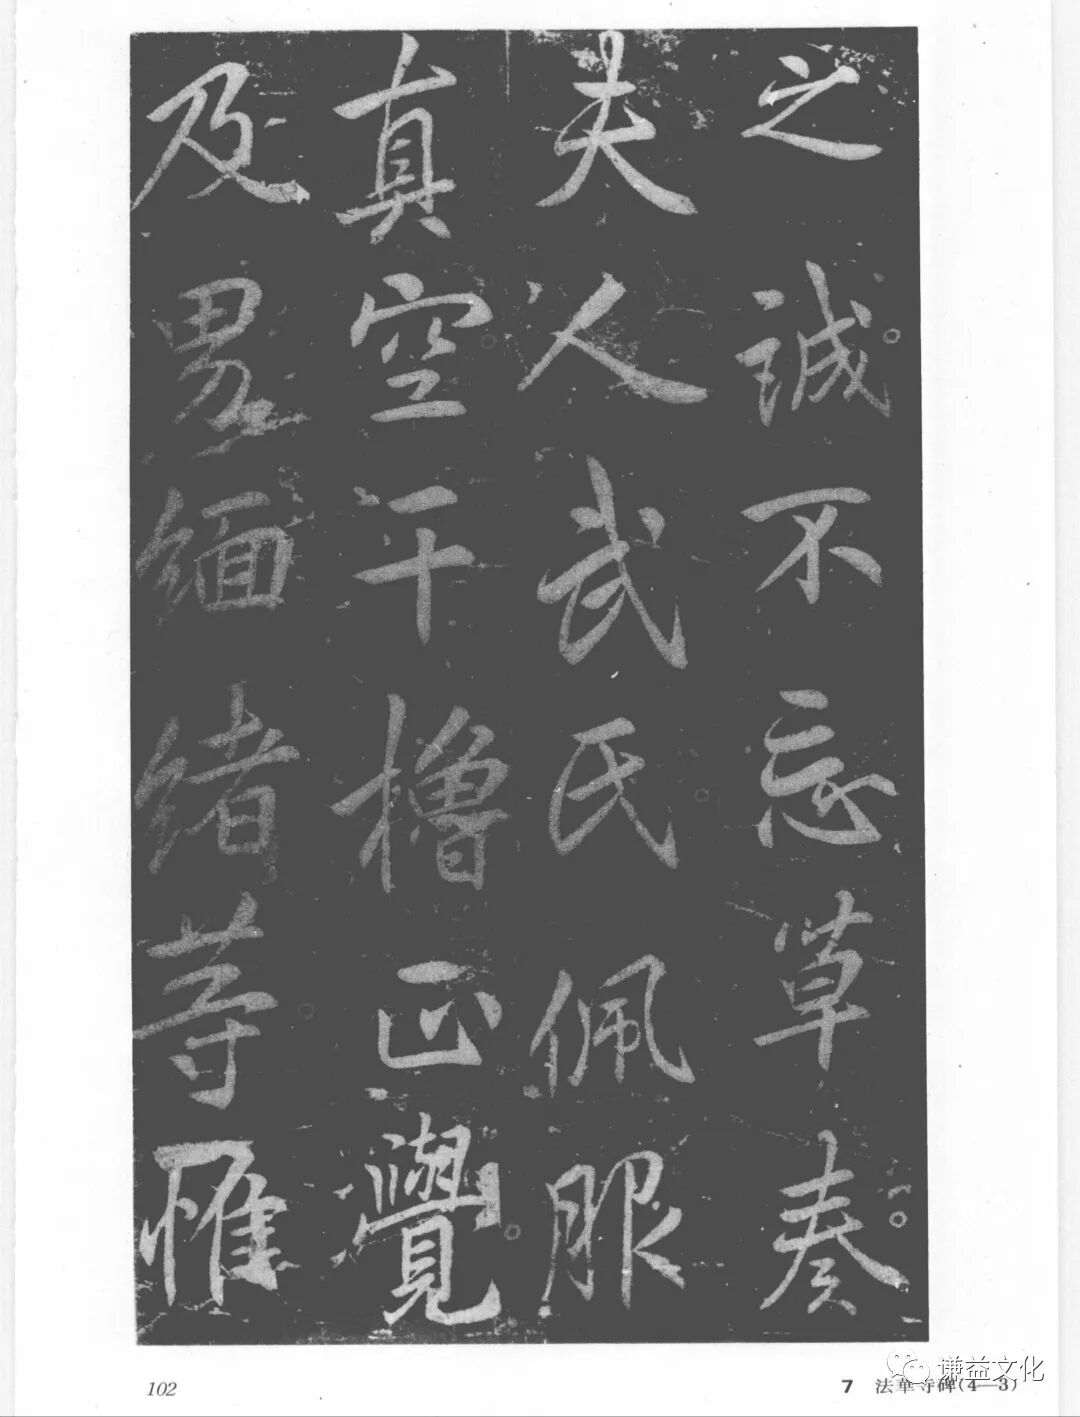 之誠不忘草奏
夫人武氏佩服
真空干櫓正覺
及男緬緒等
102
7 法華寺碑(4—3)
谦益文化